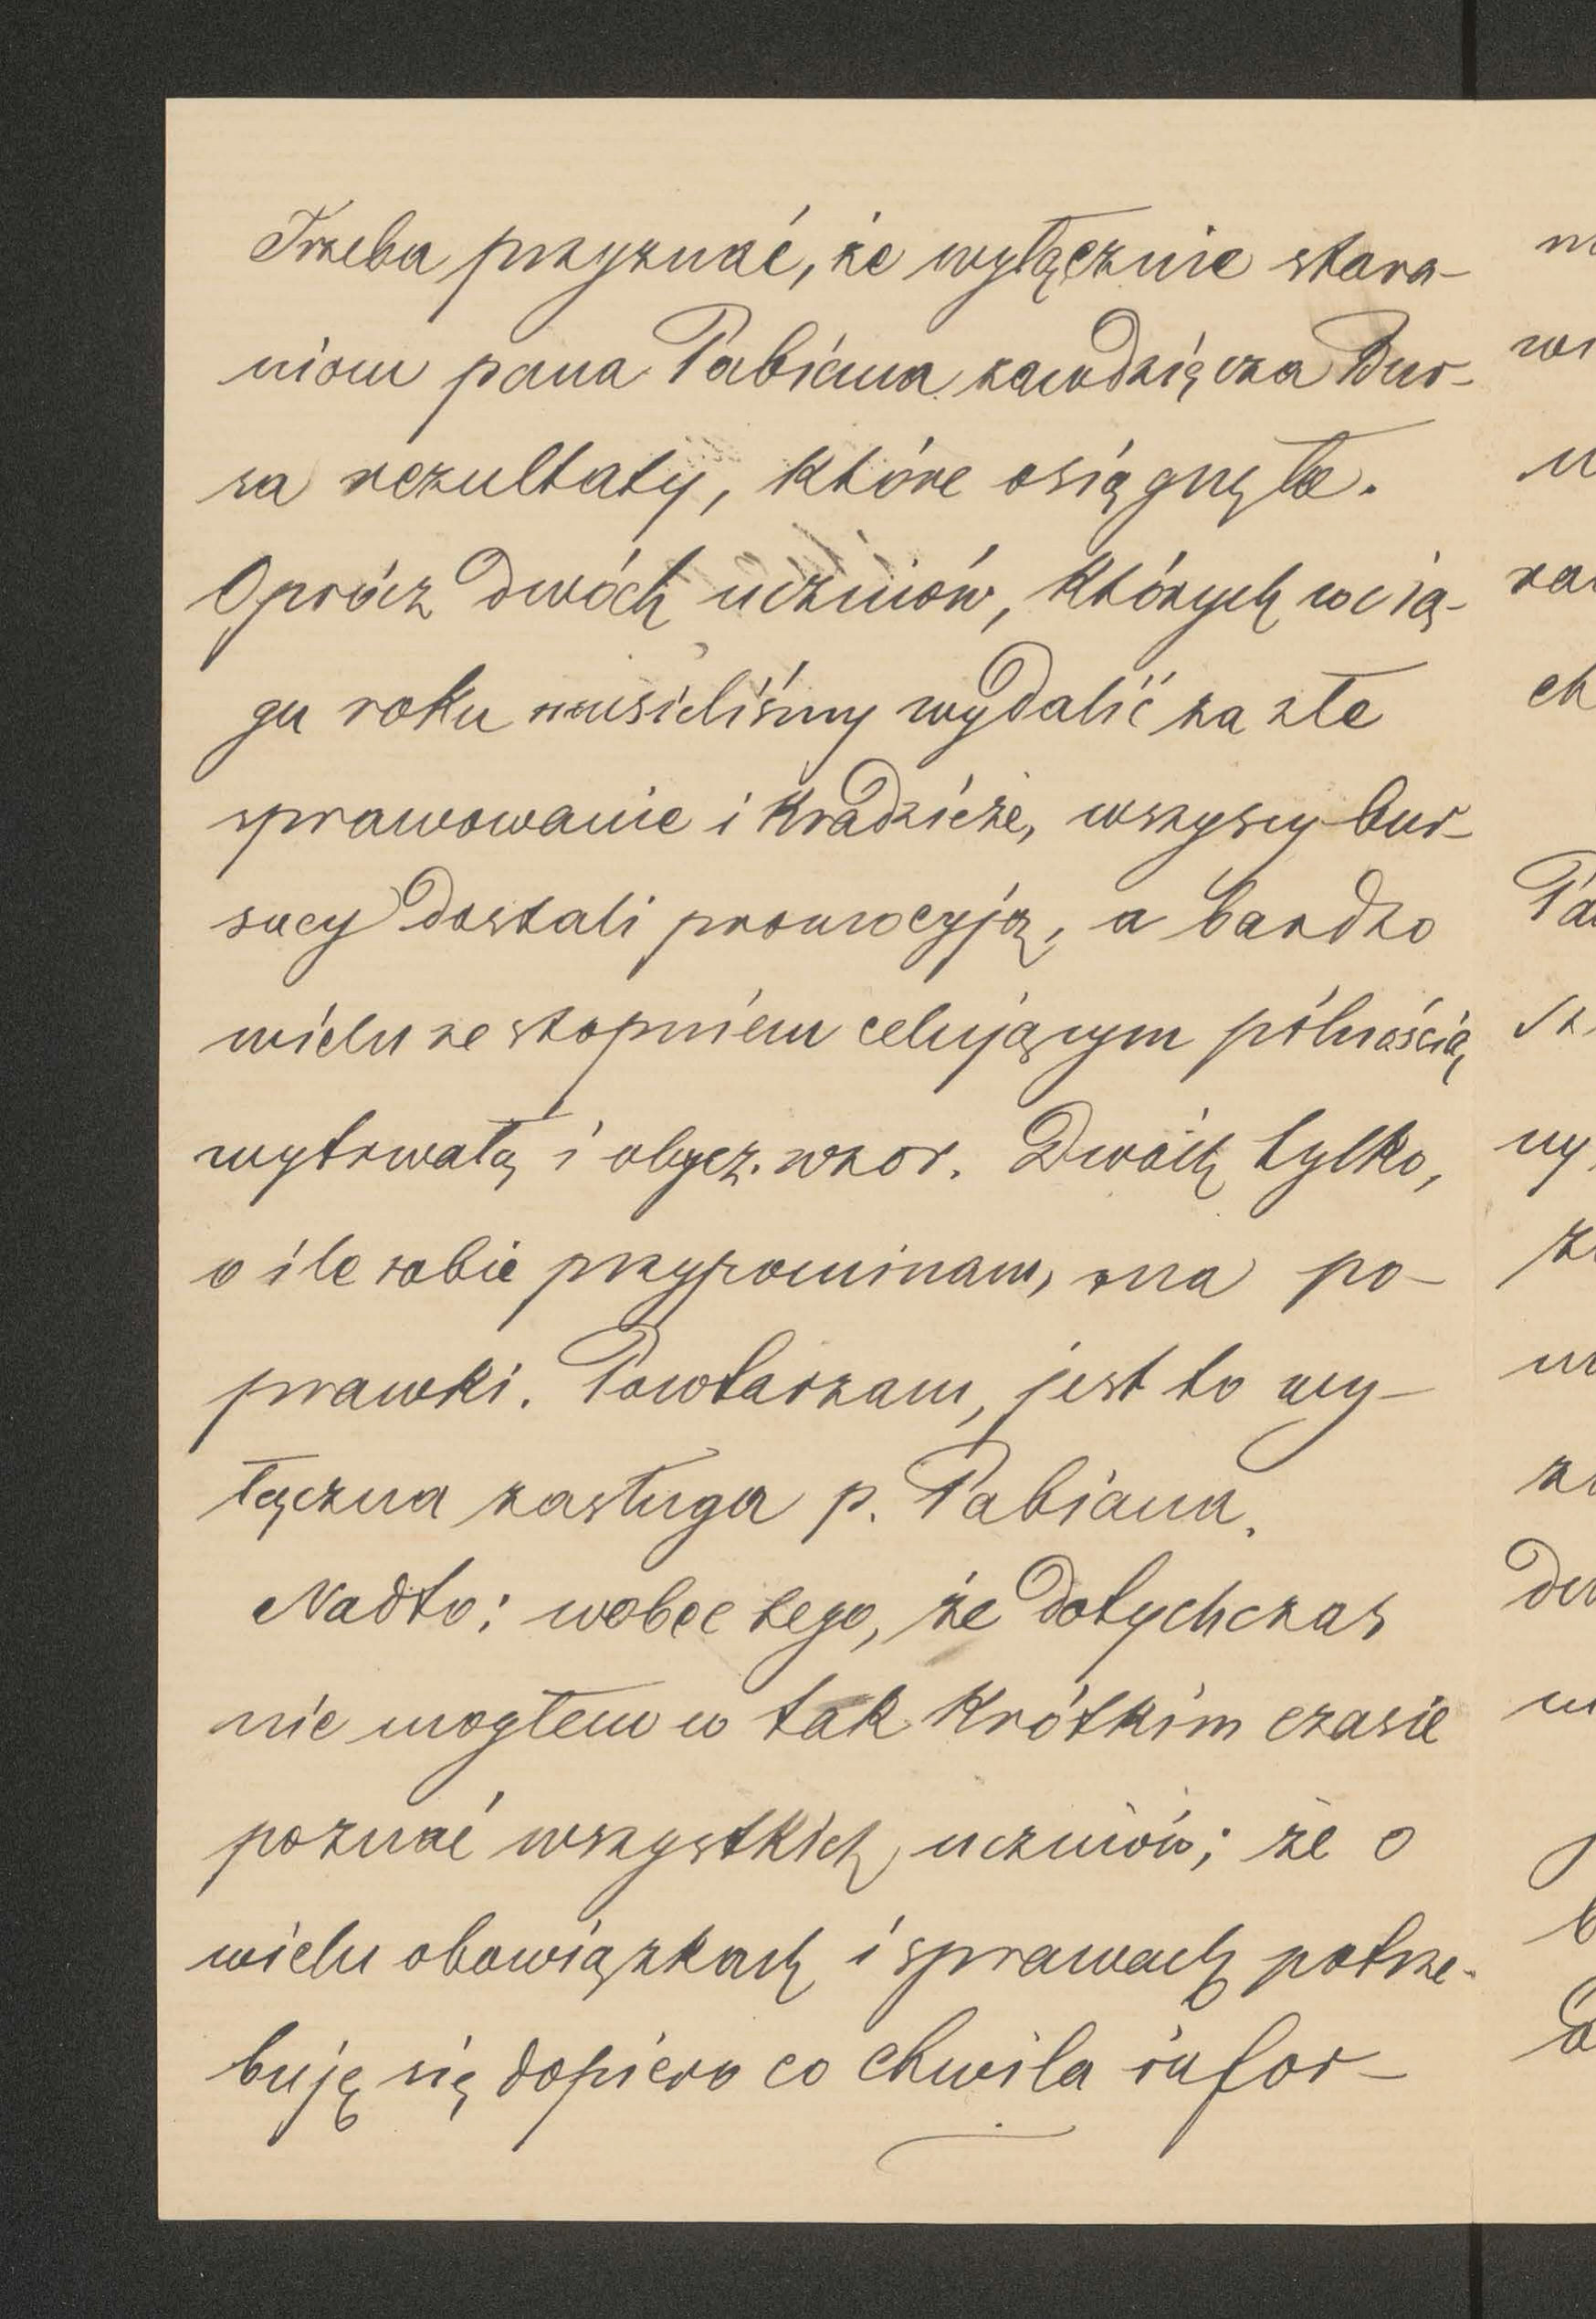 Trzeba przyznać, że wyłącznie stara-
niom pana Pabiana zawdzięcza Bur-
sa rezultaty, które osiągnęła.
Oprócz dwóch uczniów, których w cią-
gu roku musieliśmy wydalić za złe
sprawowanie i kradzieże, wszyscy bur-
sacy dostali promocyją, a bardzo
wielu ze stopniem celującym pilnością
wytrwałą i obycz. wzor. Dwóch tylko,
o ile sobie przypominam, ma po-
prawki. Powtarzam, jest to wy-
łączna zasługa p. Pabiana.
Nadto: wobec tego, że dotychczas
nie mogłem w tak krótkim czasie
poznać wszystkich uczniów; że o
wielu obowiązkach i sprawach potrze-
buję się dopiero co chwila infor-